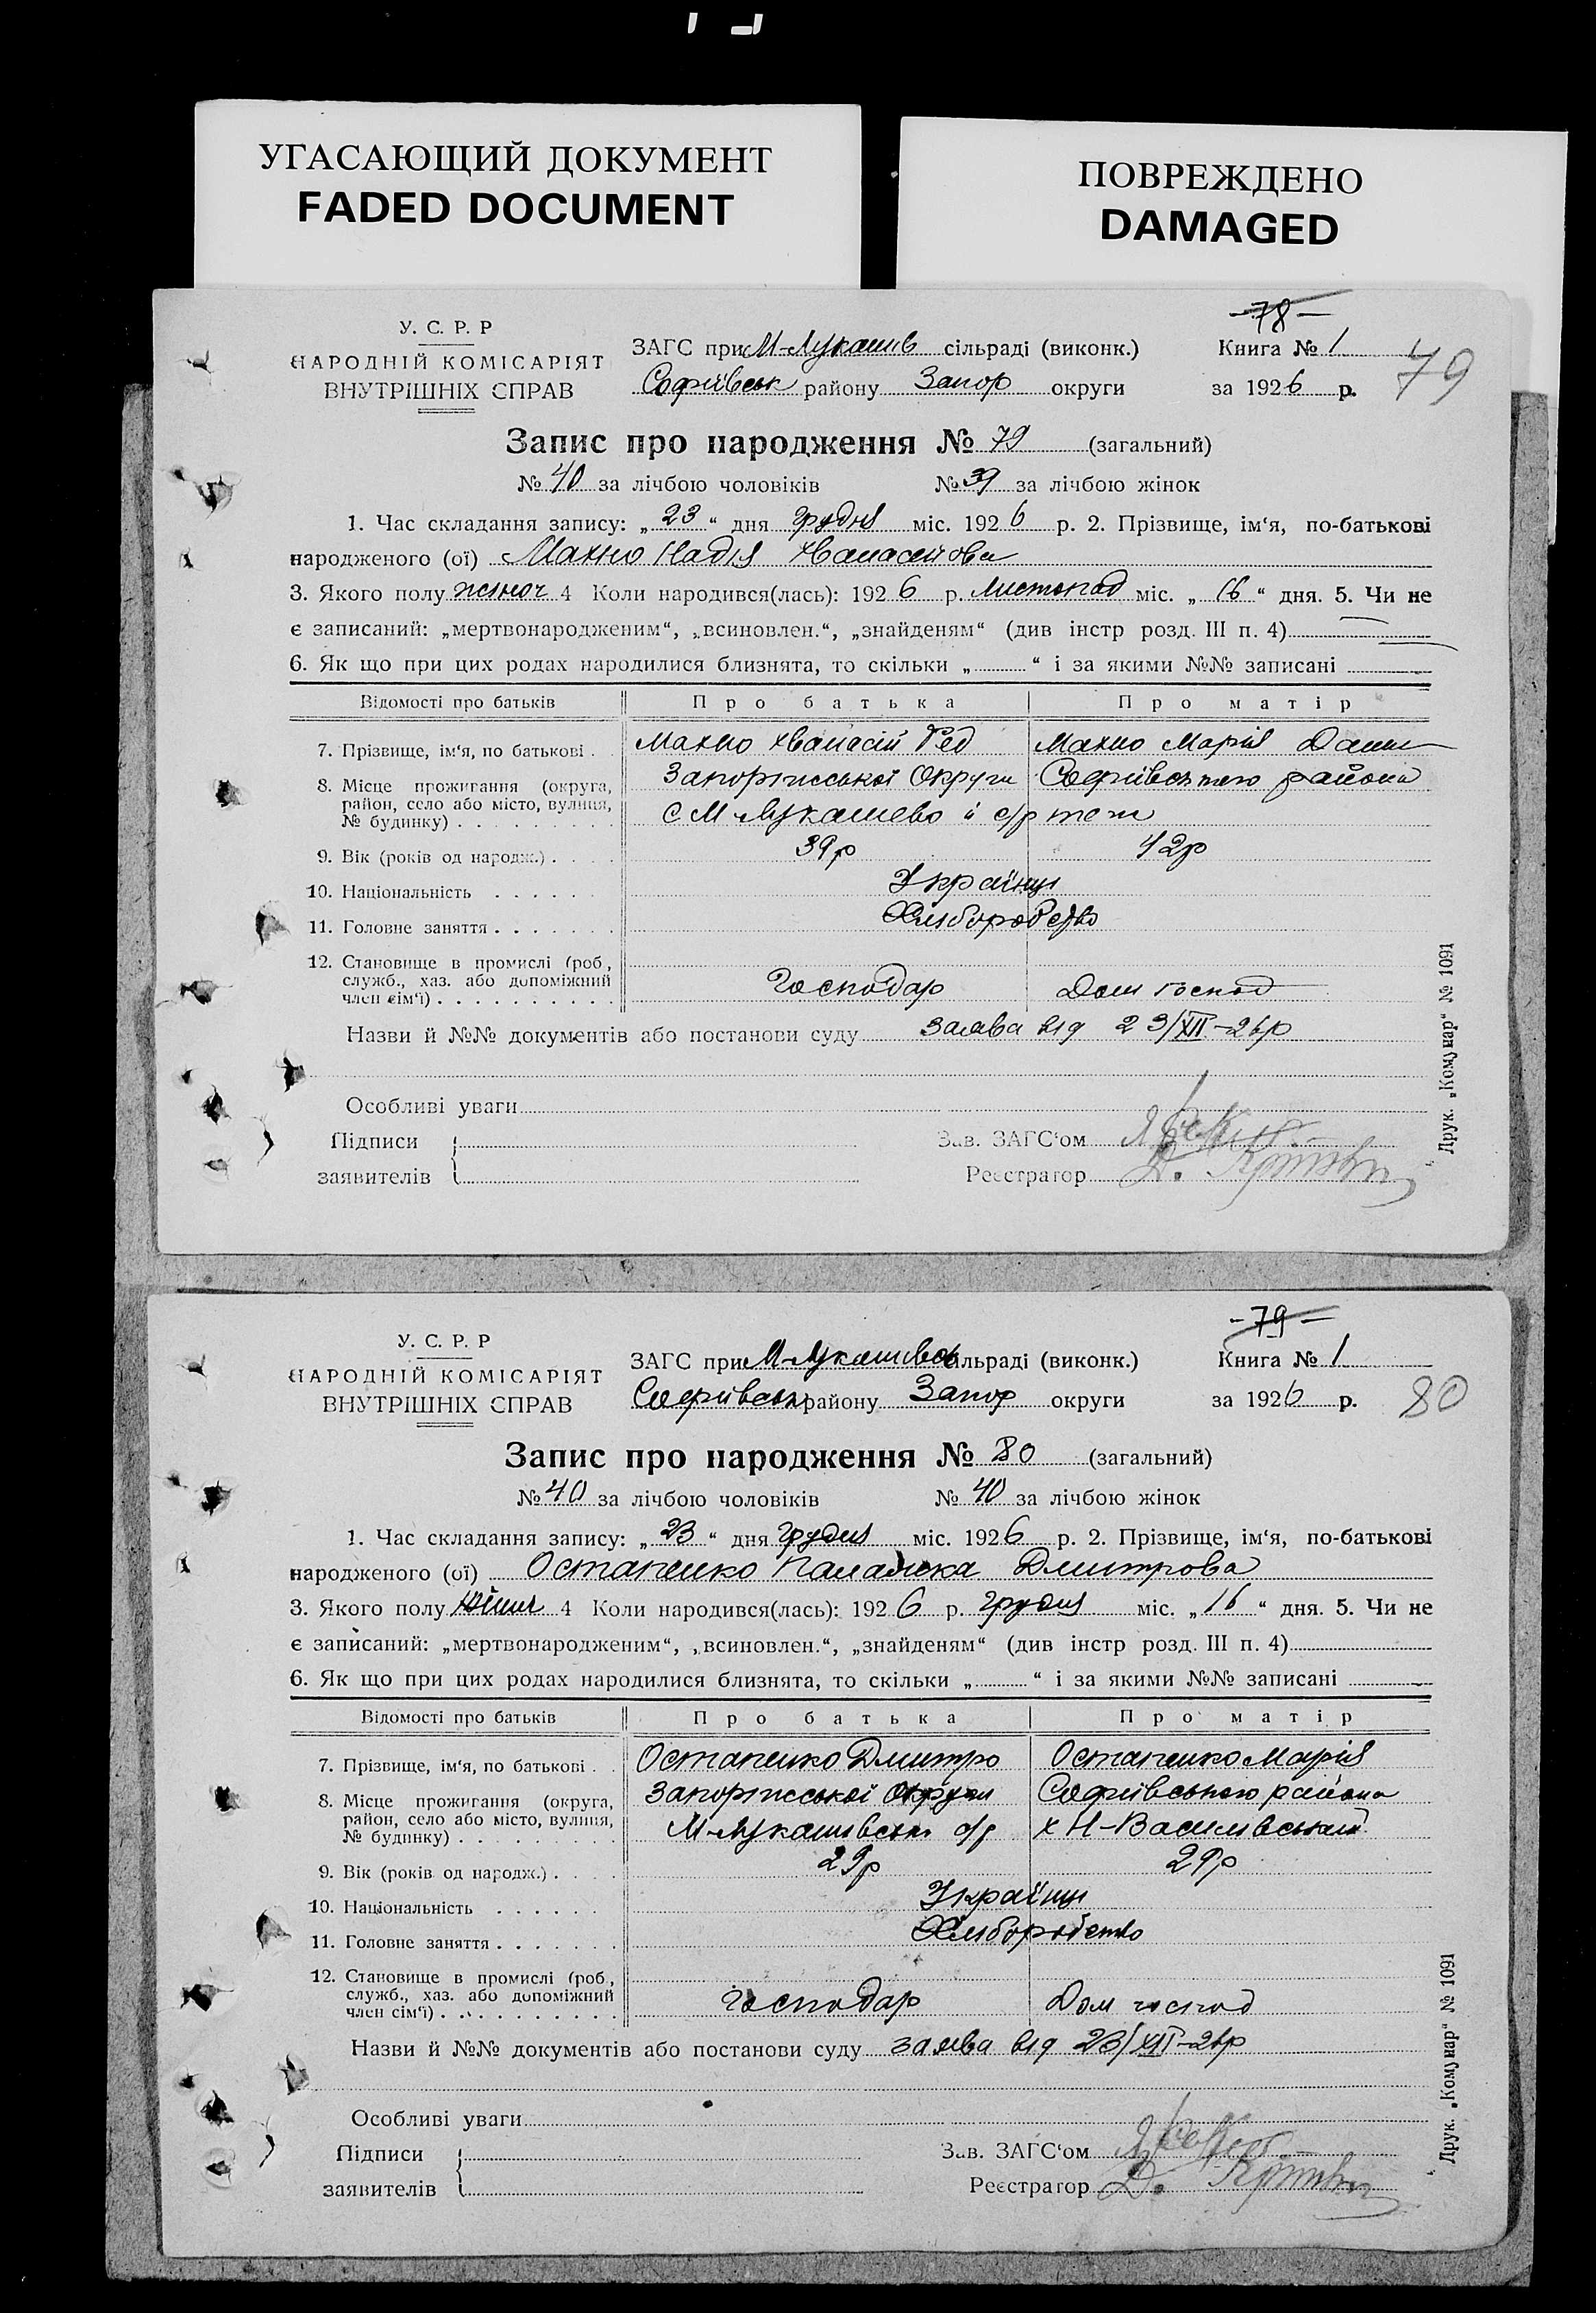 УГАСАЮЩИЙ ДОКУМЕНТ
FADED DOCUMENT
ПОВРЕЖДЕНО
DAMAGED
-78-
У. С. Р. Р
НАРОДНІЙ КОМІСАРІЯТ
ВНУТРІШНІХ СПРАВ
ЗАГС при М-Лукашів сільраді (виконк.)
Софіївськ району Запор округи
Книга № 1
за 1926 р.
79
Запис про народження № 79 (загальний)
№ 40 за лічбою чоловіків № 39 за лічбою жінок
1. Час складання запису: „23“ дня грудня міс. 1926 р. 2. Прізвище, ім‘я, по-батькові
народженого (ої) Махно Надія
3. Якого полу жіноч 4 Коли народився(лась): 1926 р. Листопад міс. „16“ дня. 5. Чи не
є записаний: „мертвонародженим“, „всиновлен.“, „знайденям“ (див інстр розд. III п. 4)
6. Як що при цих родах народилися близнята, то скільки „ “ і за якими №№ записані
Відомості про батьків Про батька Про матір
7. Прізвище, ім‘я, по батькові . Махно Хванасій Фед Махно Марія Дани
8. Місце прожигання (округа, район, село або місто, вулиця, № будинку) Запоріжської Округи Софіївського района
с М-Лукашево й с/р теж
9. Вік (років од народж.) 39р 42р
10. Національність Українці
11. Головне заняття Хліборобство
12. Становище в промислі (роб., служб., хаз. або допоміжний член сім‘ї) Господар Дом господ
Назви й №№ документів або постанови суду заява від 23/XII-26р
Особливі уваги
Підписи
заявителів
Зав. ЗАГС‘ом
Реєстратор Д.
Друк. „Комунар“ № 1091
-79-
У. С. Р. Р
НАРОДНІЙ КОМІСАРІЯТ
ВНУТРІШНІХ СПРАВ
ЗАГС при М-Лукашівськ сільраді (виконк.)
Софіївськ району Запор округи
Книга № 1
за 1926 р.
80
Запис про народження № 80 (загальний)
№ 40 за лічбою чоловіків № 40 за лічбою жінок
1. Час складання запису: „23“ дня грудня міс. 1926 р. 2. Прізвище, ім‘я, по-батькові
народженого (ої) Остапенко Палажка Дмитрова
3. Якого полу 4 Коли народився(лась): 1926 р. грудня міс. „16“ дня. 5. Чи не
є записаний: „мертвонародженим“, „всиновлен.“, „знайденям“ (див інстр розд. III п. 4)
6. Як що при цих родах народилися близнята, то скільки „ “ і за якими №№ записані
Відомості про батьків Про батька Про матір
7. Прізвище, ім‘я, по батькові . Остапенко Дмитро Остапенко Марія
8. Місце прожигання (округа, район, село або місто, вулиця, № будинку) Запоріжської Округи Софіївського района
М-Лукашівськ с/р х Н-Василівський
9. Вік (років од народж.) 29р 29р
10. Національність Українці
11. Головне заняття Хліборобство
12. Становище в промислі (роб., служб., хаз. або допоміжний член сім‘ї) Господар Дом господ
Назви й №№ документів або постанови суду заява від 23/XII-26р
Особливі уваги
Підписи
заявителів
Зав. ЗАГС‘ом
Реєстратор Д.
Друк. „Комунар“ № 1091